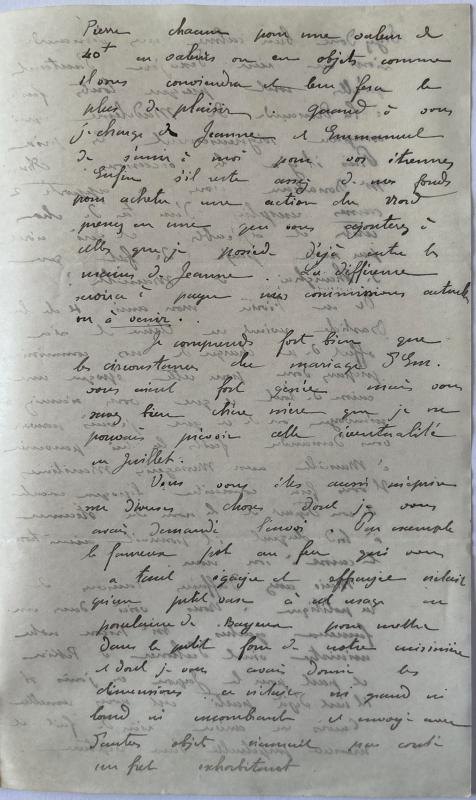 Pierre chacun pour une valeur de
40f en valeurs ou en objets comme
il vous conviendra et leur fera le
plus de plaisir. Quand à vous
je charge Jeanne et Emmanuel
de s'unir à moi pour vos étrennes
Enfin s'il reste assez de mes fonds
pour acheter une action du Nord
prenez en une que vous ajouterez à
celles que je possède déjà entre les
mains de Jeanne. La différence
servira à payer mes commissions actuelles
ou à venir.
Je comprends fort bien que
les circonstances du mariage St Em.
vous aient fort gênée mais vous
savez bien chère mère que je ne
pouvais prévoir cette éventualité
en Juillet.
Vous vous êtes aussi méprise
sur diverses choses dont je vous
avais demandé l'envoi. Par exemple
le fameux pot au feu qui vous
a tant égayée et effrayée n'était
qu'un petit vase à cet usage en
porcelaine de Bayeux pour mettre
dans le petit four de notre cuisinière
et dont je vous avais donné les
dimensions ce n'était ni grand ni
lourd ni encombrant et envoyé avec
d'autres objets n'aurait pas coûté
un fret exhorbitant